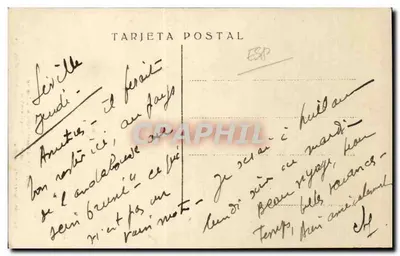 TARJETA POSTAL
ESP
Séville
Jeudi
Amitiés - il ferait
bon rester ici, au pays
de "l'andalouse au
sein bruni" - ce qui
n'est pas un
vain mot -
Je serai à
lundi soir ou mardi -
Beau voyage, beau
temps, belles vacances -
Bien amicalement
CPAPHIL